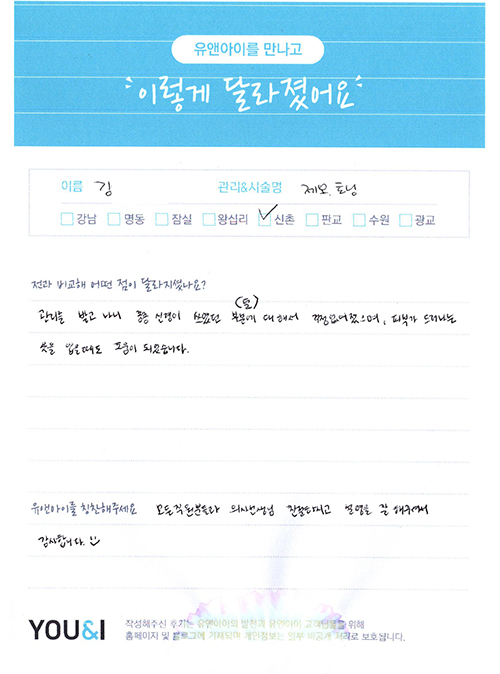 유앤아이를 만나고
이렇게 달라졌어요
이름 김 관리&시술명 제모, 토닝
강남 명동 잠실 왕십리 신촌 판교 수원 광교
전과 비교해 어떤 점이 달라지셨나요?
관리를 받고 나니 종종 신경이 쓰였던 부분에 (털) 대해서 깔끔해졌으며, 피부가 드러나는
옷을 입을때도 도움이 되었습니다.
유앤아이를 칭찬해주세요 모든직원분들과 의사선생님 친절하시고 설명을 잘 해주셔서
감사합니다.
YOU&I 작성해주신 후기는 유앤아이의 발전과 유앤아이 고객님들을 위해
홈페이지 및 블로그에 기재되며 개인정보는 외부 비공개 처리로 보호됩니다.